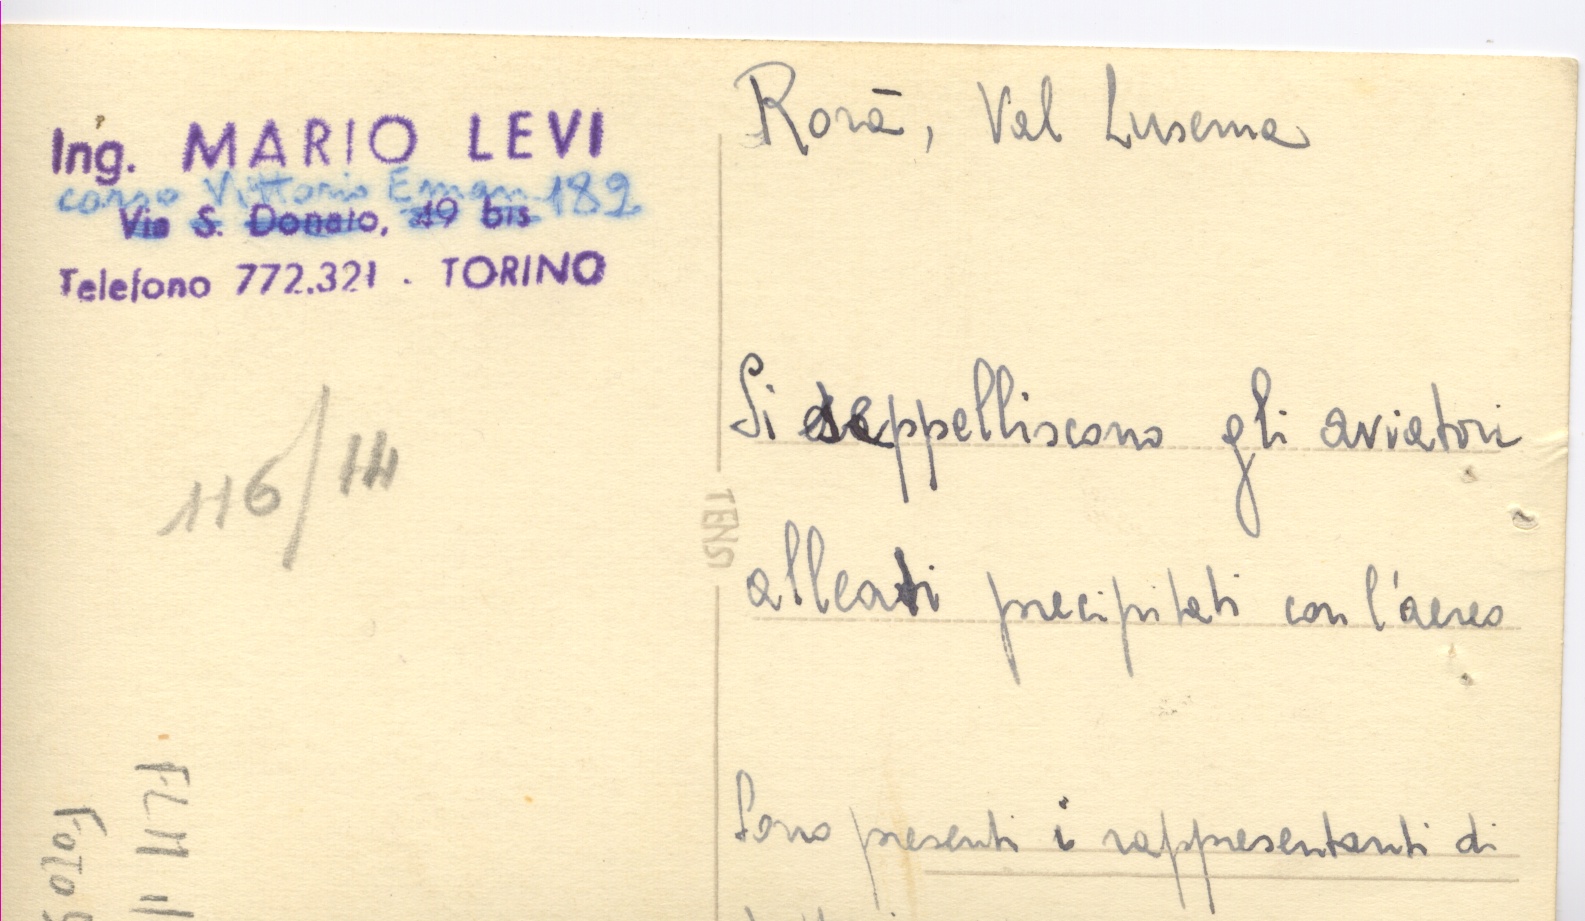 Ing. MARIO LEVI
corso Vittorio Eman 182
Via S. Donato, 19 bis
Telefono 772.321 . TORINO
116/14
FLM
FOTO
TENSI
Rorā, Val Luserna
Si seppelliscono gli aviatori
alleati precipitati con l'aereo
Sono presenti i rappresentanti di